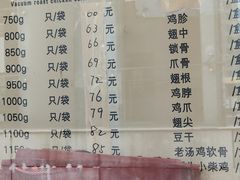 Vacuum roast chicken
750g 只/袋 60 元 鸡胗
800g 只/袋 63 元 翅中
850g 只/袋 66 元 锁骨
900g 只/袋 69 元 爪骨
950g 只/袋 72 元 翅根
1000g 只/袋 76 元 鸡脖
1050g 只/袋 79 元 鸡爪
1100g 只/袋 82 元 翅尖
1150g 只/袋 85 元 豆干
老汤鸡软骨
小柴鸡